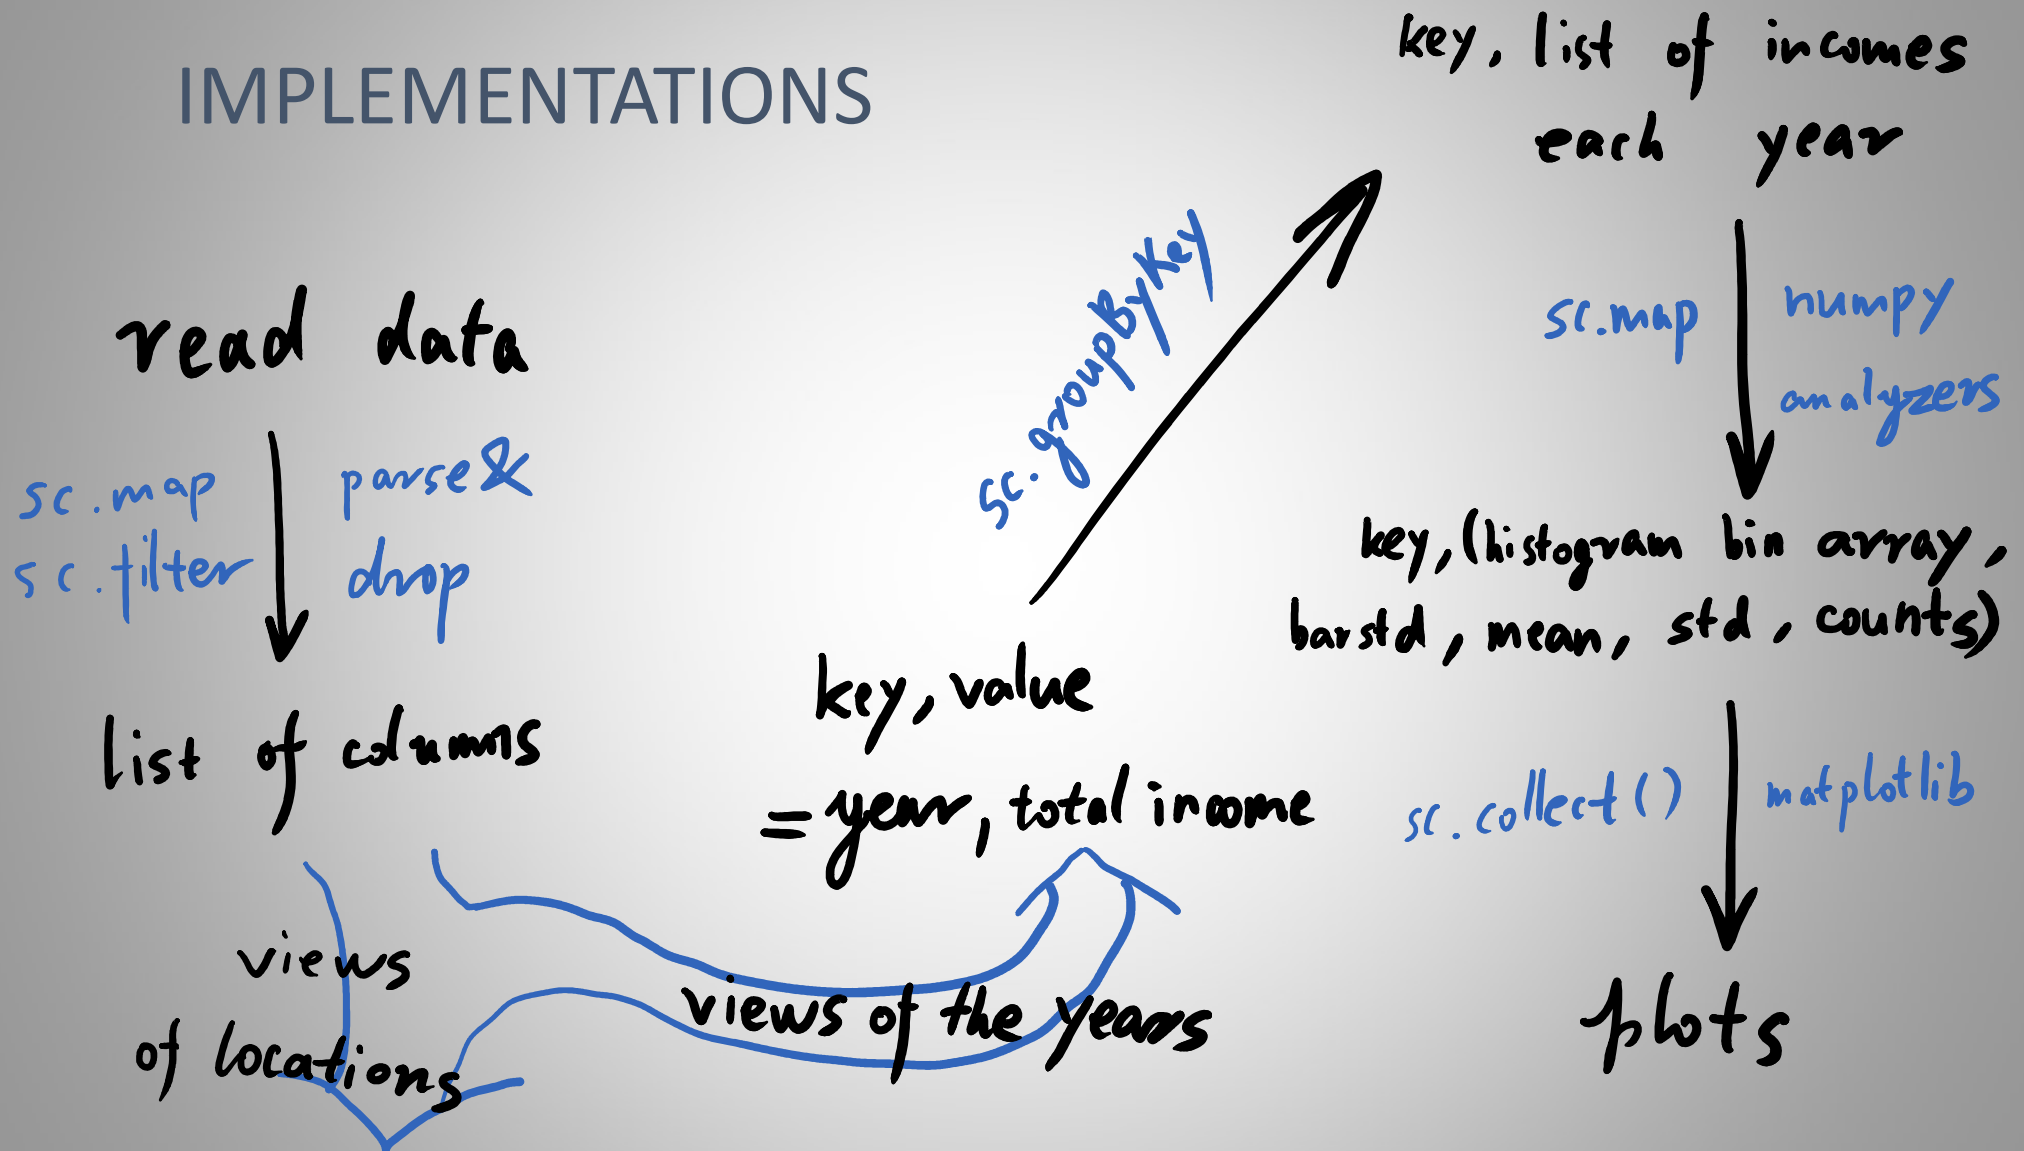 IMPLEMENTATIONS
read data
sc.map
sc.filter
parse&
drop
list of columns
views
of locations
views of the years
key, value
= year, total income
sc.groupByKey
key, list of incomes
each year
sc.map
numpy
analyzers
key, (histogram bin array,
barstd, mean, std, counts)
sc.collect()
matplotlib
plots